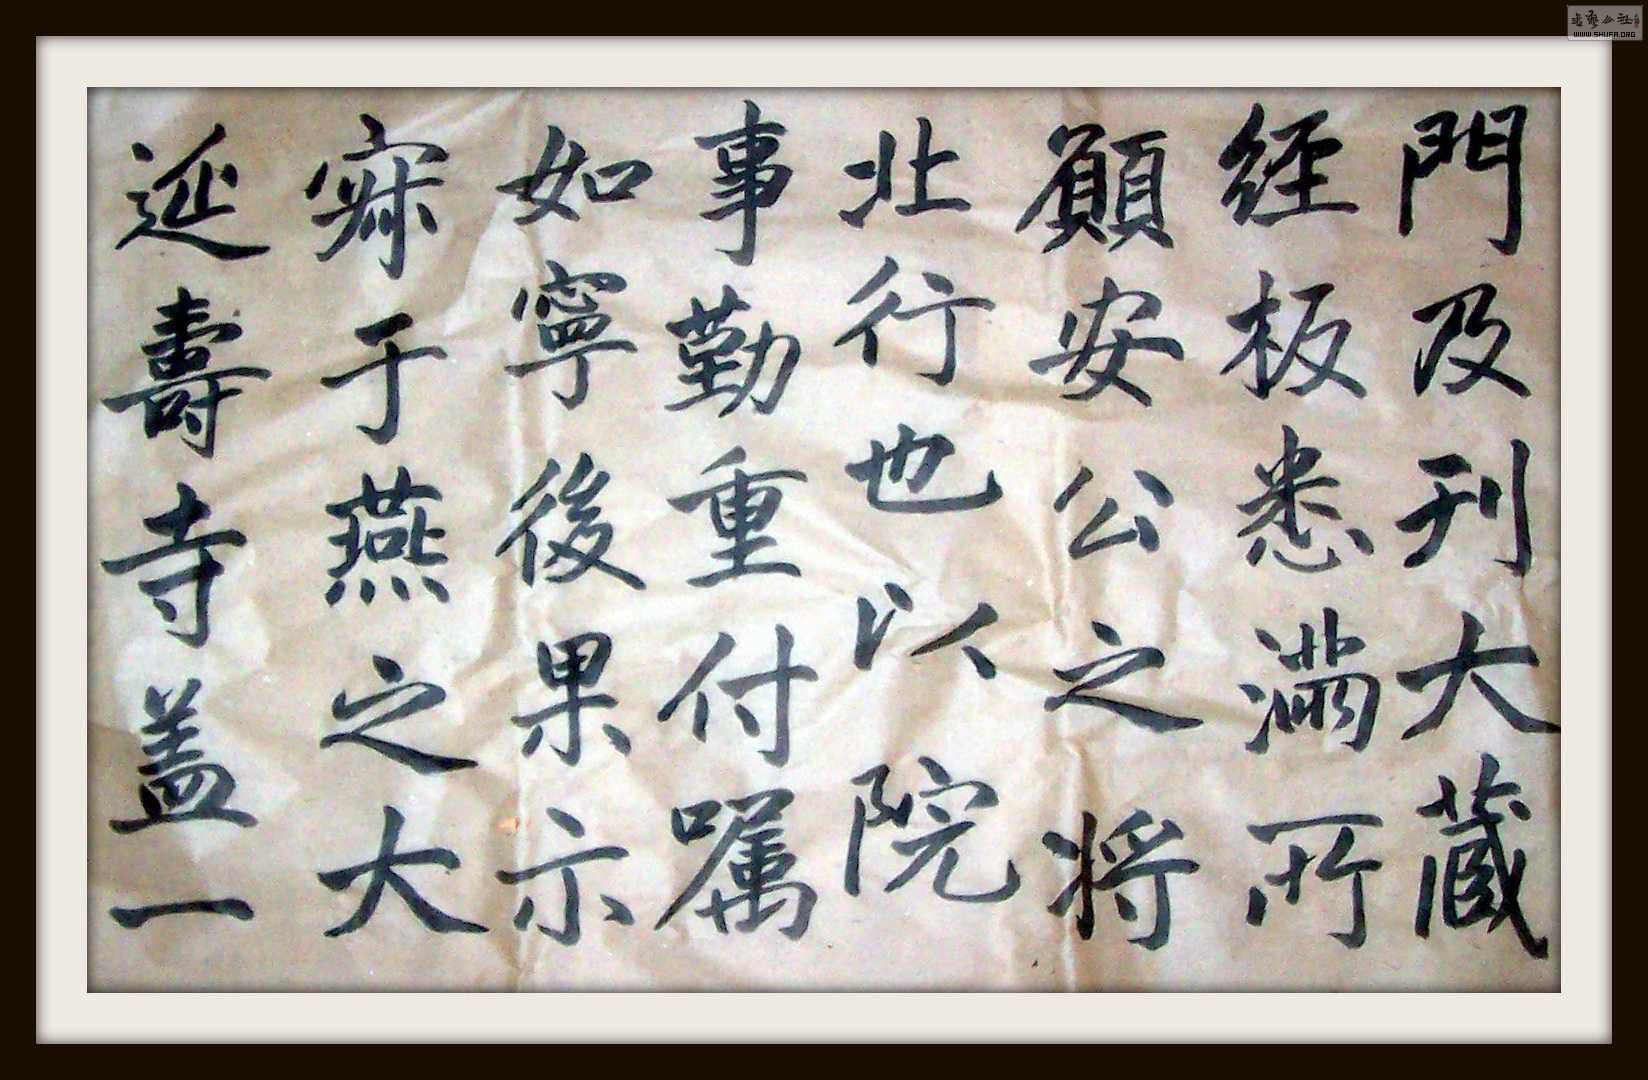 門及刊大蔵
經板悉滿所
願安公之將
北行也以院
事勤重付囑
如寧後果示
寂于燕之大
延壽寺盖一
書藝公社
WWW.SHUFA.ORG